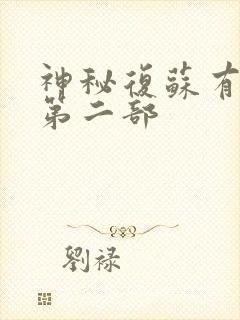 神秘復蘇有
第二部
劉禄